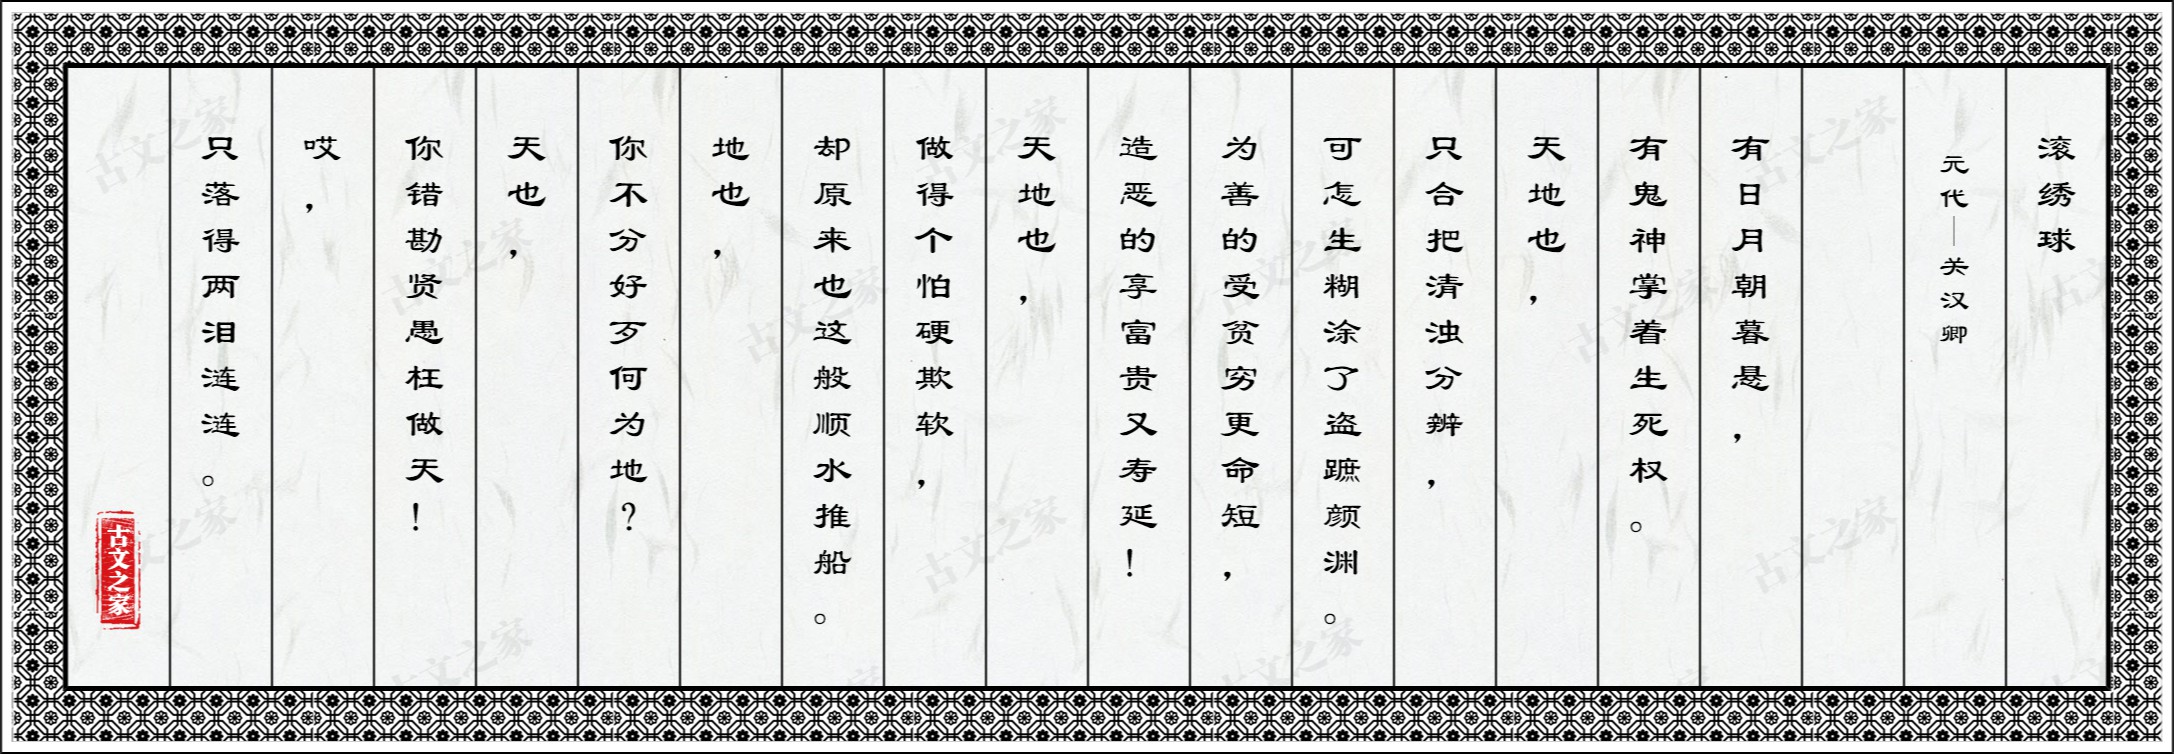 滚绣球
元代—关汉卿
有日月朝暮悬，
有鬼神掌着生死权。
天地也，
只合把清浊分辨，
可怎生糊涂了盗蹠颜渊。
为善的受贫穷更命短，
造恶的享富贵又寿延！
天地也，
做得个怕硬欺软，
却原来也这般顺水推船。
地也，
你不分好歹何为地？
天也，
你错勘贤愚枉做天！
哎，
只落得两泪涟涟。
古文之家